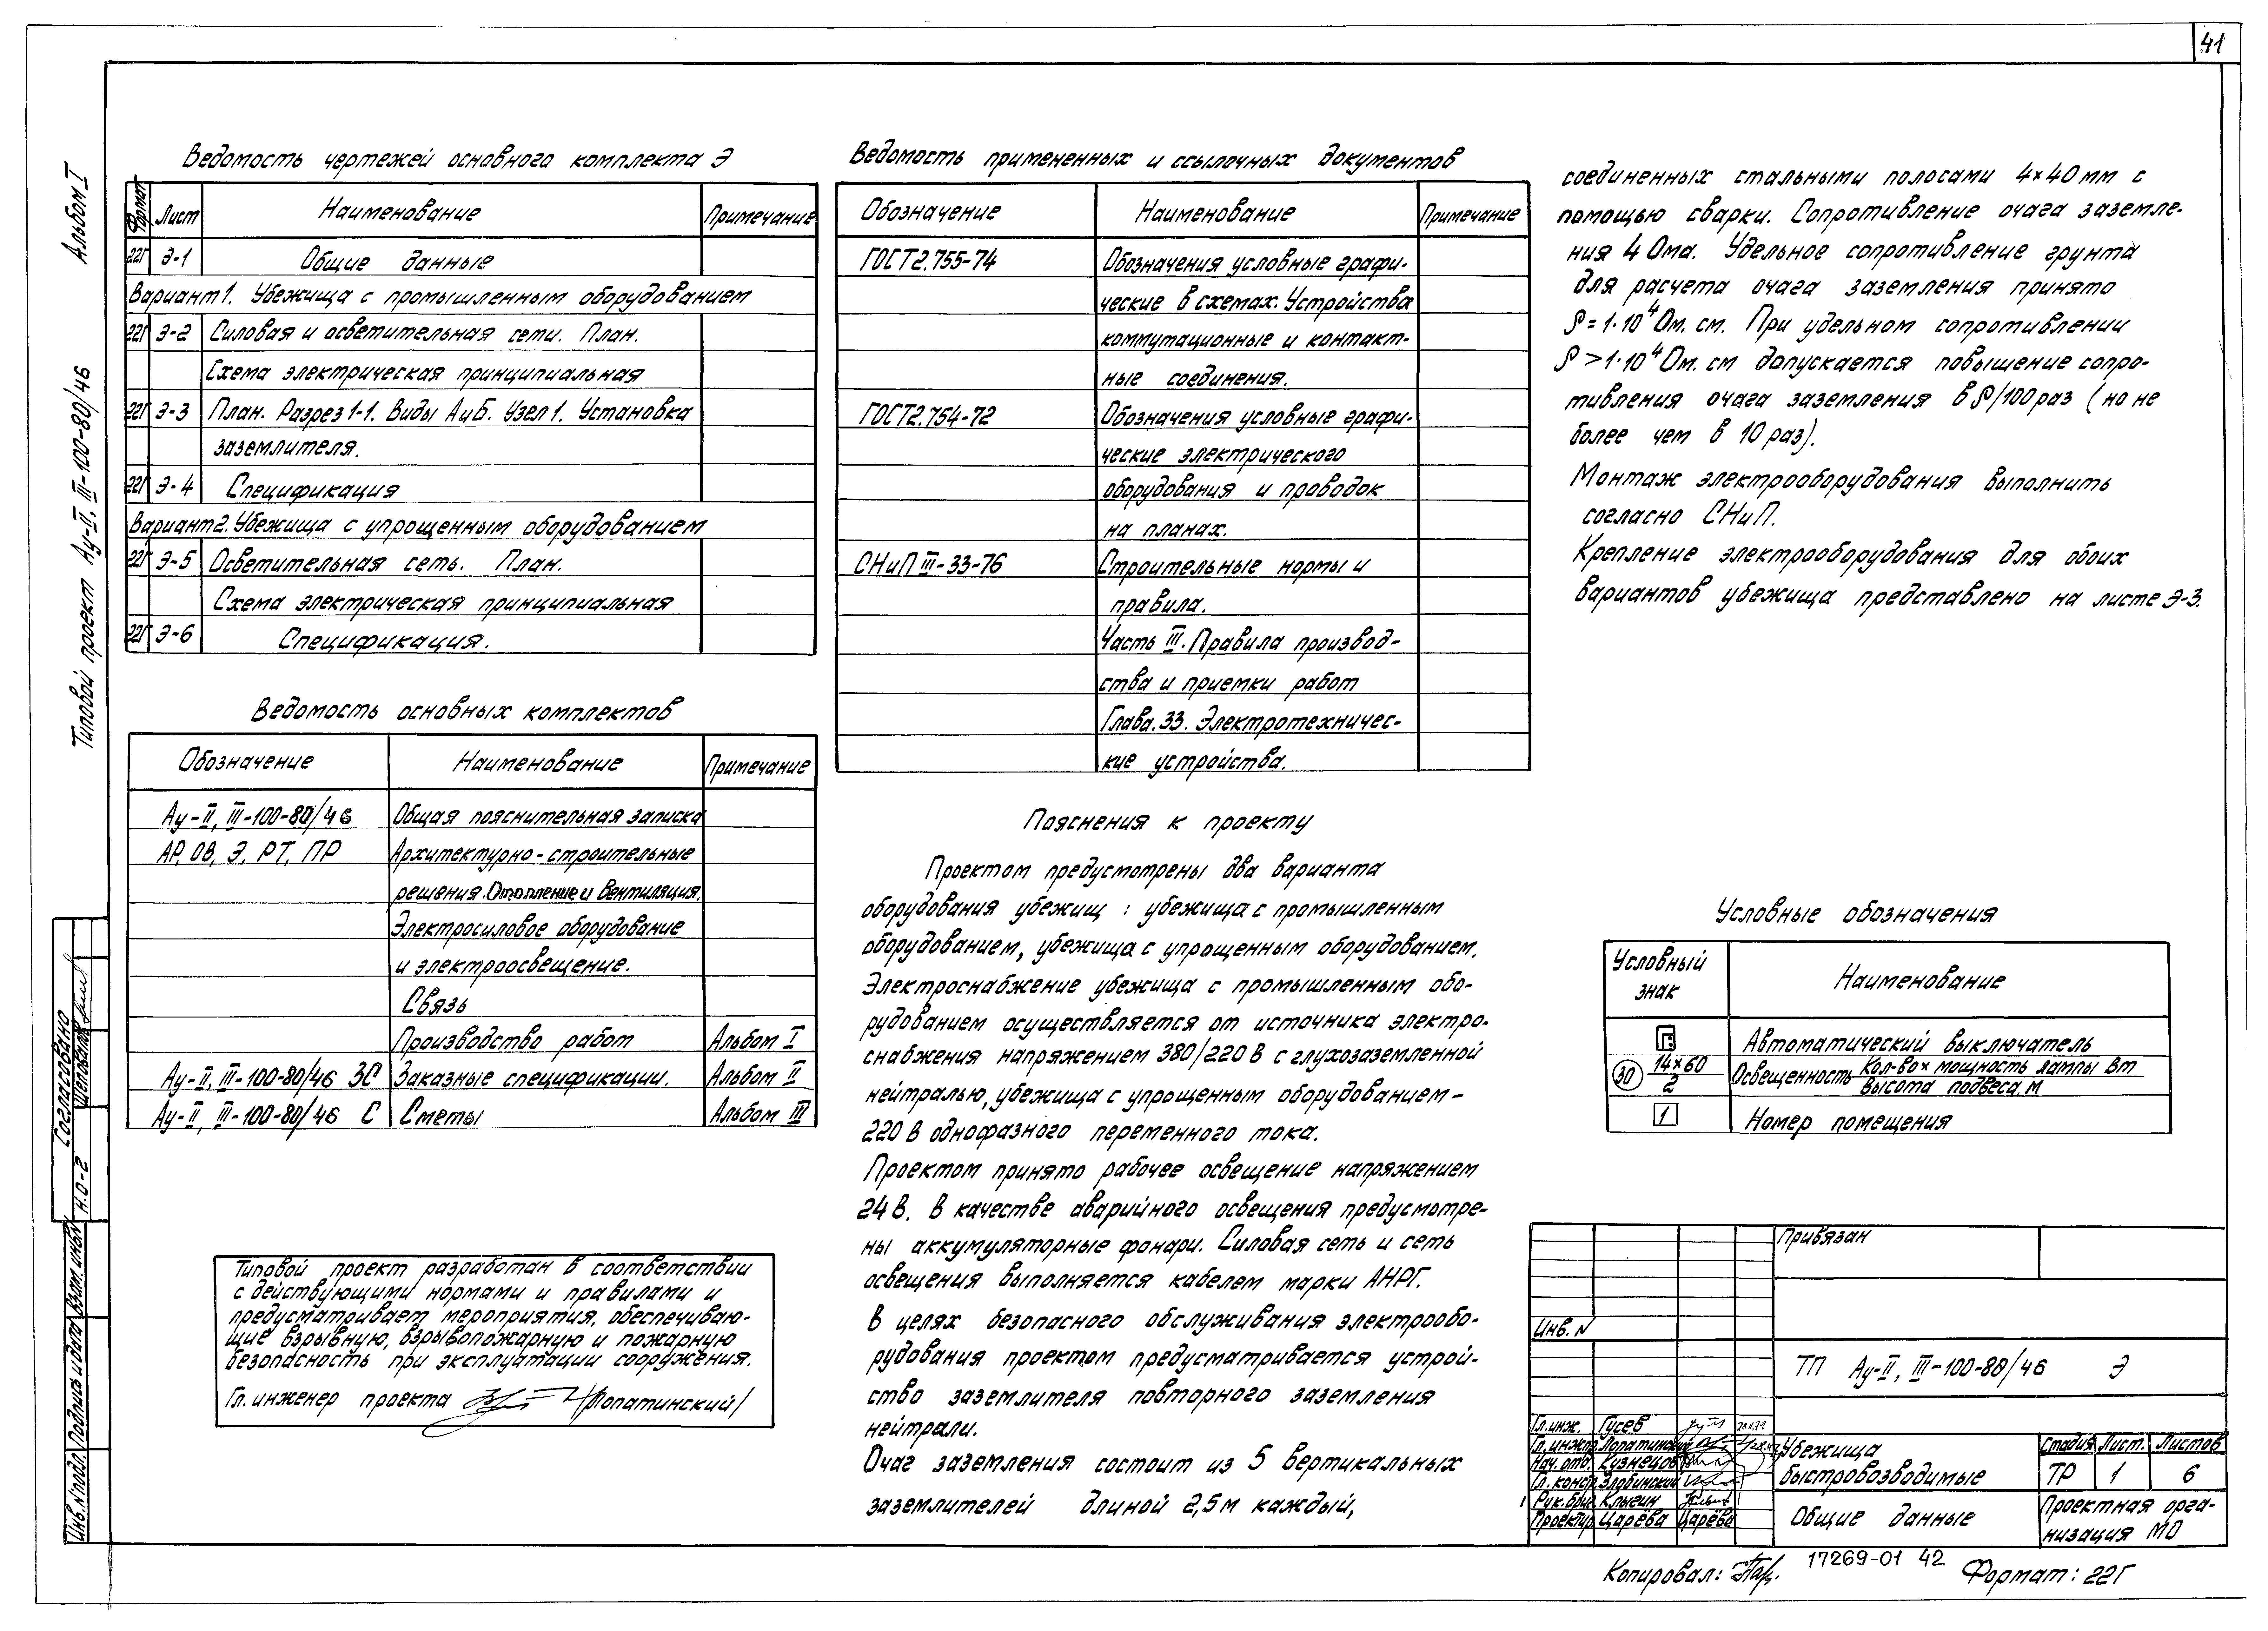 41
Альбом I
Типовой проект Ау-II, III-100-80/46
Ведомость чертежей основного комплекта Э
Формат Лист Наименование Примечание
22Г Э-1 Общие данные
Вариант 1. Убежища с промышленным оборудованием
22Г Э-2 Силовая и осветительная сети. План.
Схема электрическая принципиальная
22Г Э-3 План. Разрез 1-1. Виды А и Б. Узел 1. Установка
заземлителя.
22Г Э-4 Спецификация
Вариант 2. Убежища с упрощенным оборудованием
22Г Э-5 Осветительная сеть. План.
Схема электрическая принципиальная
22Г Э-6 Спецификация.
Ведомость основных комплектов
Обозначение Наименование Примечание
Ау-II, III-100-80/46 Общая пояснительная записка
АР, ОВ, Э, РТ, ПР Архитектурно-строительные
решения. Отопление и Вентиляция.
Электросиловое оборудование
и электроосвещение.
Связь
Производство работ Альбом I
Ау-II, III-100-80/46 ЗС Заказные спецификации. Альбом II
Ау-II, III-100-80/46 С Сметы Альбом III
Типовой проект разработан в соответствии
с действующими нормами и правилами и
предусматривает мероприятия, обеспечиваю-
щие взрывную, взрывопожарную и пожарную
безопасность при эксплуатации сооружения.
Гл. инженер проекта /Лопатинский/
Ведомость примененных и ссылочных документов
Обозначение Наименование Примечание
ГОСТ 2.755-74 Обозначения условные графи-
ческие в схемах. Устройства
коммутационные и контакт-
ные соединения.
ГОСТ 2.754-72 Обозначения условные графи-
ческие электрического
оборудования и проводок
на планах.
СНиП III-33-76 Строительные нормы и
правила.
Часть III. Правила производ-
ства и приемки работ
Глава. 33. Электротехничес-
кие устройства.
Пояснения к проекту
Проектом предусмотрены два варианта
оборудования убежищ : убежища с промышленным
оборудованием, убежища с упрощенным оборудованием.
Электроснабжение убежища с промышленным обо-
рудованием осуществляется от источника электро-
снабжения напряжением 380/220 В с глухозаземленной
нейтралью, убежища с упрощенным оборудованием –
220 В однофазного переменного тока.
Проектом принято рабочее освещение напряжением
24 В. В качестве аварийного освещения предусмотре-
ны аккумуляторные фонари. Силовая сеть и сеть
освещения выполняется кабелем марки АНРГ.
В целях безопасного обслуживания электрообо-
рудования проектом предусматривается устрой-
ство заземлителя повторного заземления
нейтрали.
Очаг заземления состоит из 5 вертикальных
заземлителей длиной 2,5 м каждый,
соединенных стальными полосами 4×40 мм с
помощью сварки. Сопротивление очага заземле-
ния 4 Ома. Удельное сопротивление грунта
для расчета очага заземления принято
ρ = 1·10⁴ Ом. см. При удельном сопротивлении
ρ > 1·10⁴ Ом. см допускается повышение сопро-
тивления очага заземления в ρ/100 раз (но не
более чем в 10 раз).
Монтаж электрооборудования выполнить
согласно СНиП.
Крепление электрооборудования для обоих
вариантов убежища представлено на листе Э-3.
Условные обозначения
Условный знак Наименование
Автоматический выключатель
30 14×60/2 Освещенность Кол-во × мощность лампы Вт / высота подвеса, м
1 Номер помещения
Согласовано
Н.О-2 Щеповалов
Взам. инв.N
Подпись и дата
Инв. N подл.
Привязан
Инв. N
ТП Ау-II, III-100-80/46 Э
Гл. инж. Гусев
Гл. инж. пр. Лопатинский
Нач. отд. Кузнецов
Гл. констр. Злобинский
Рук. бриг. Клыгин
Проектир. Царёва Царёва
Убежища
быстровозводимые
Стадия Лист. Листов
ТР 1 6
Общие данные
Проектная орга-
низация МО
Копировал:
17269-01 42
Формат: 22Г